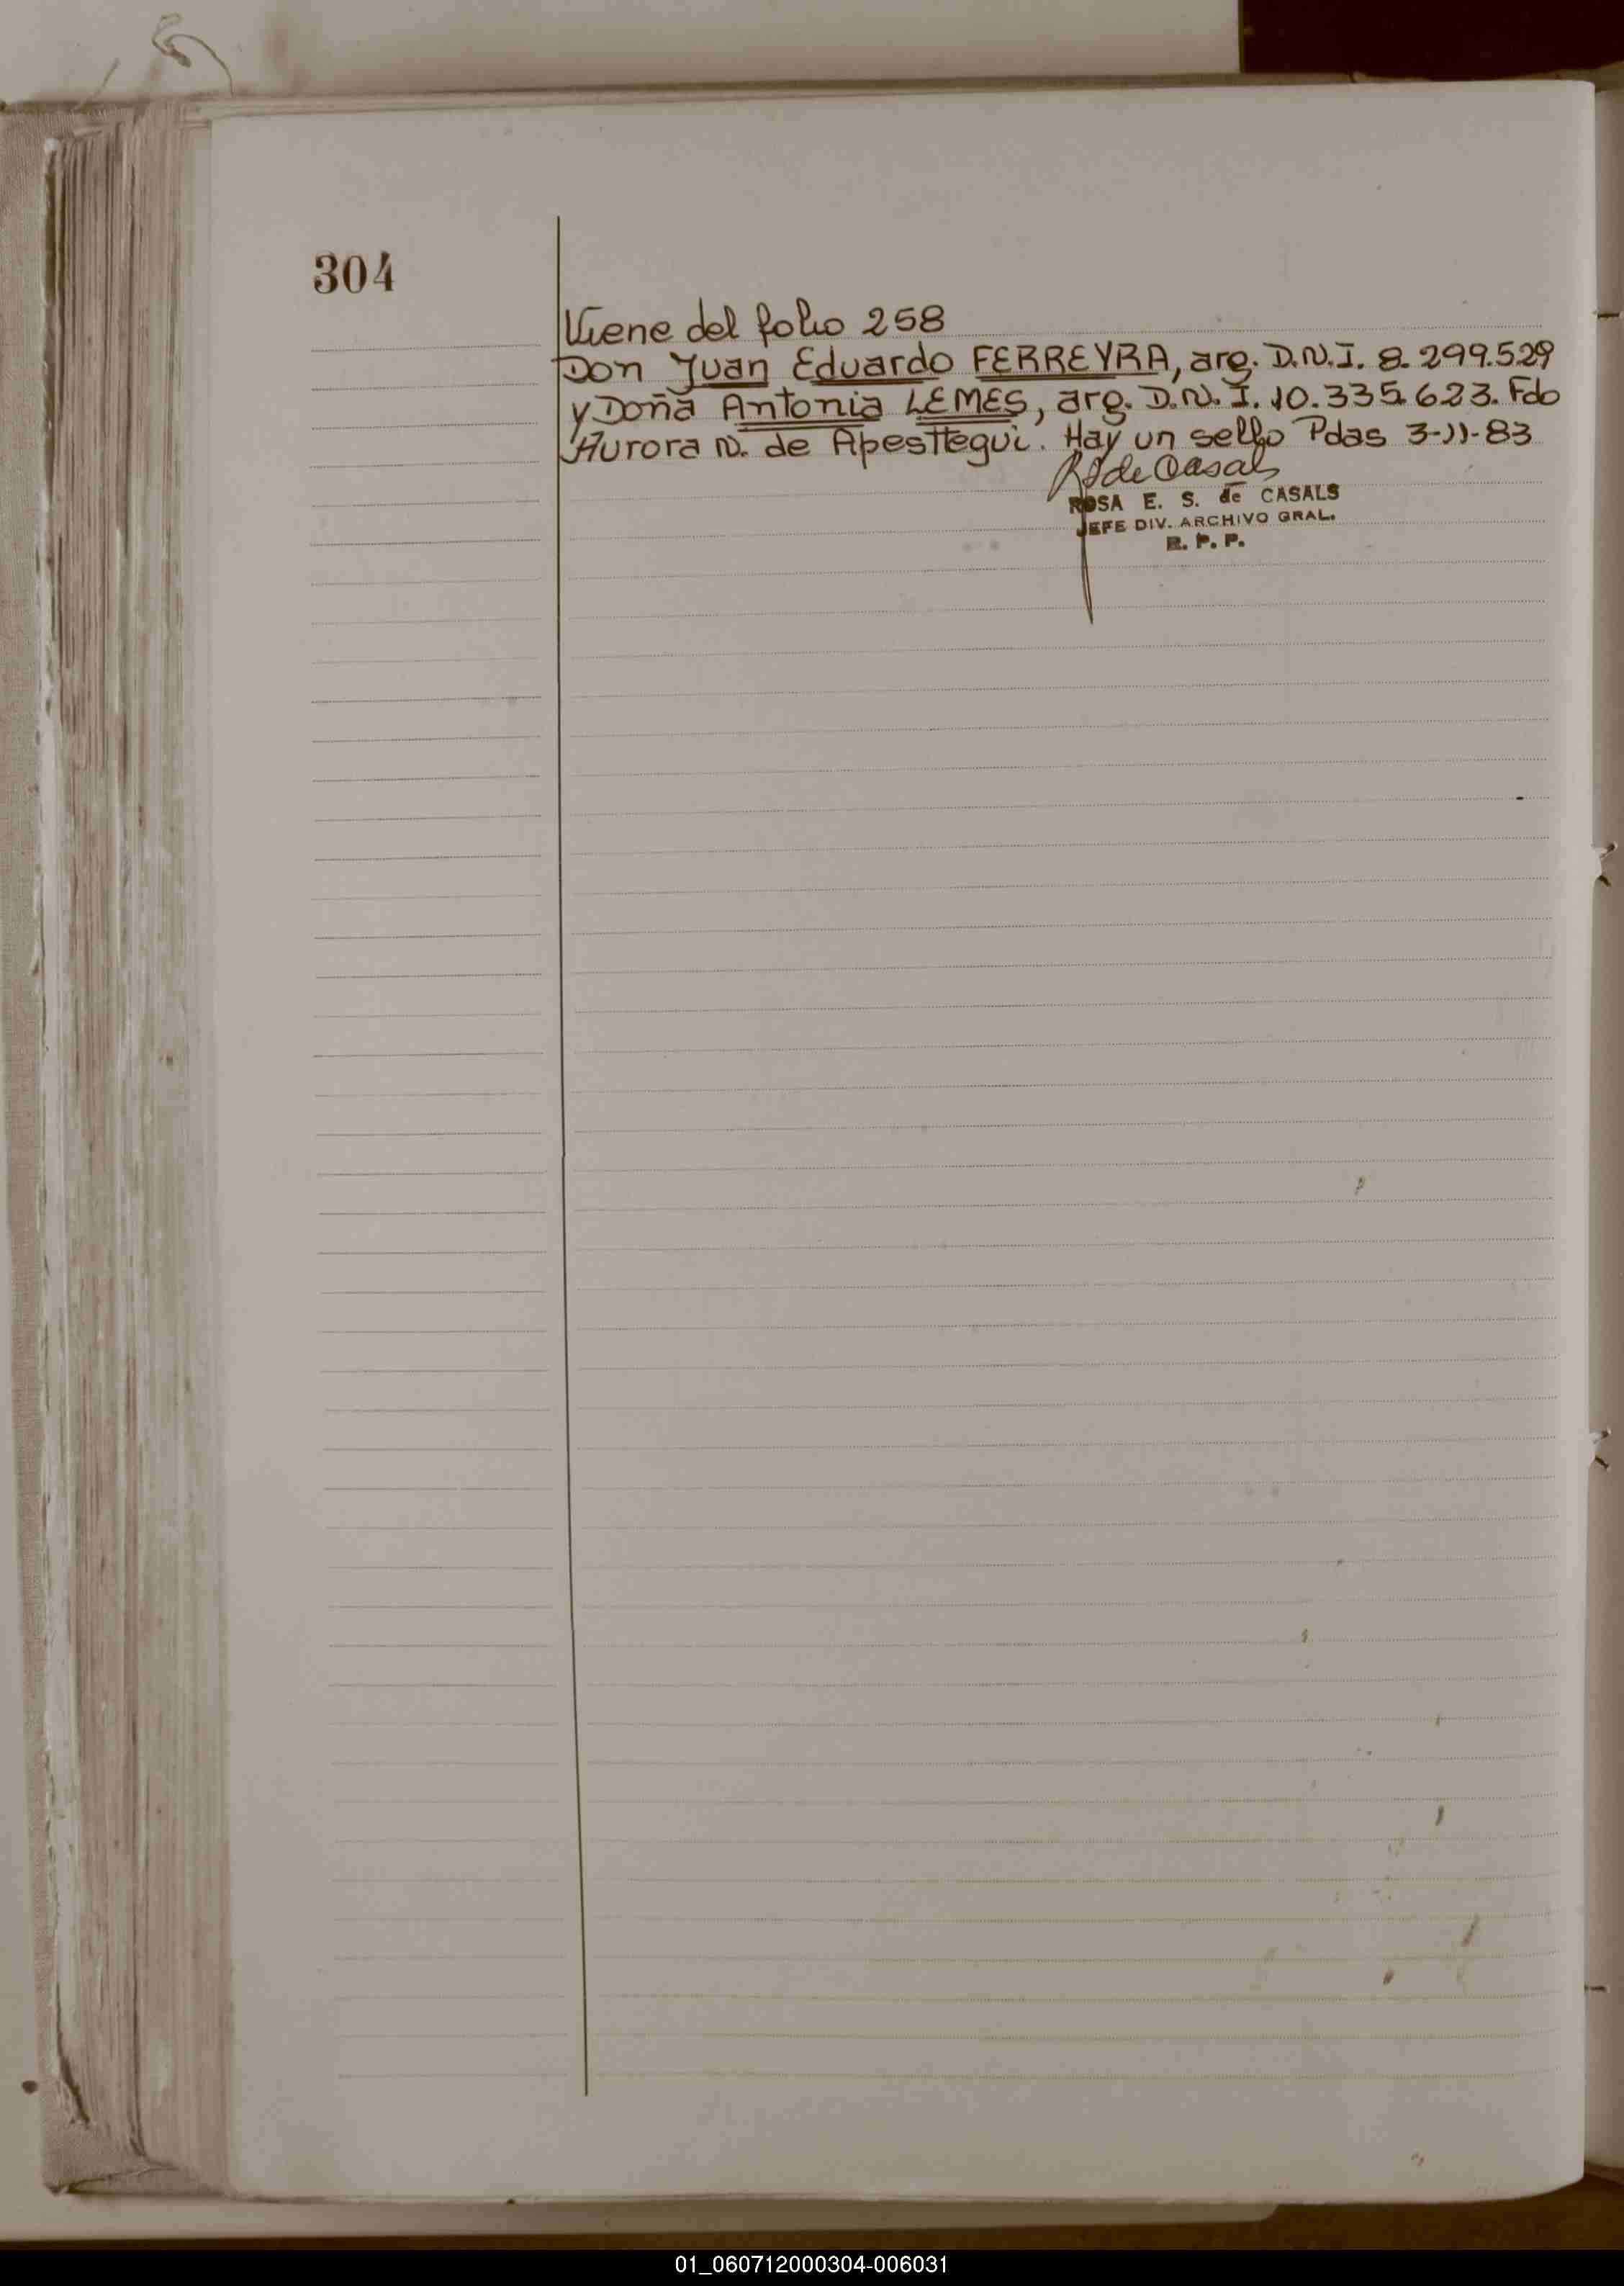 304
Viene del folio 258
Don Juan Eduardo FERREYRA, arg. D.N.I. 8.299.529
y Doña Antonia LEMES, arg. D.N.I. 10.335.623. Fdo
Aurora N. de Apesttegui. Hay un sello Pdas 3-11-83
R S de Casals
ROSA E. S. de CASALS
JEFE DIV. ARCHIVO GRAL.
R. P. P.
01_060712000304-006031